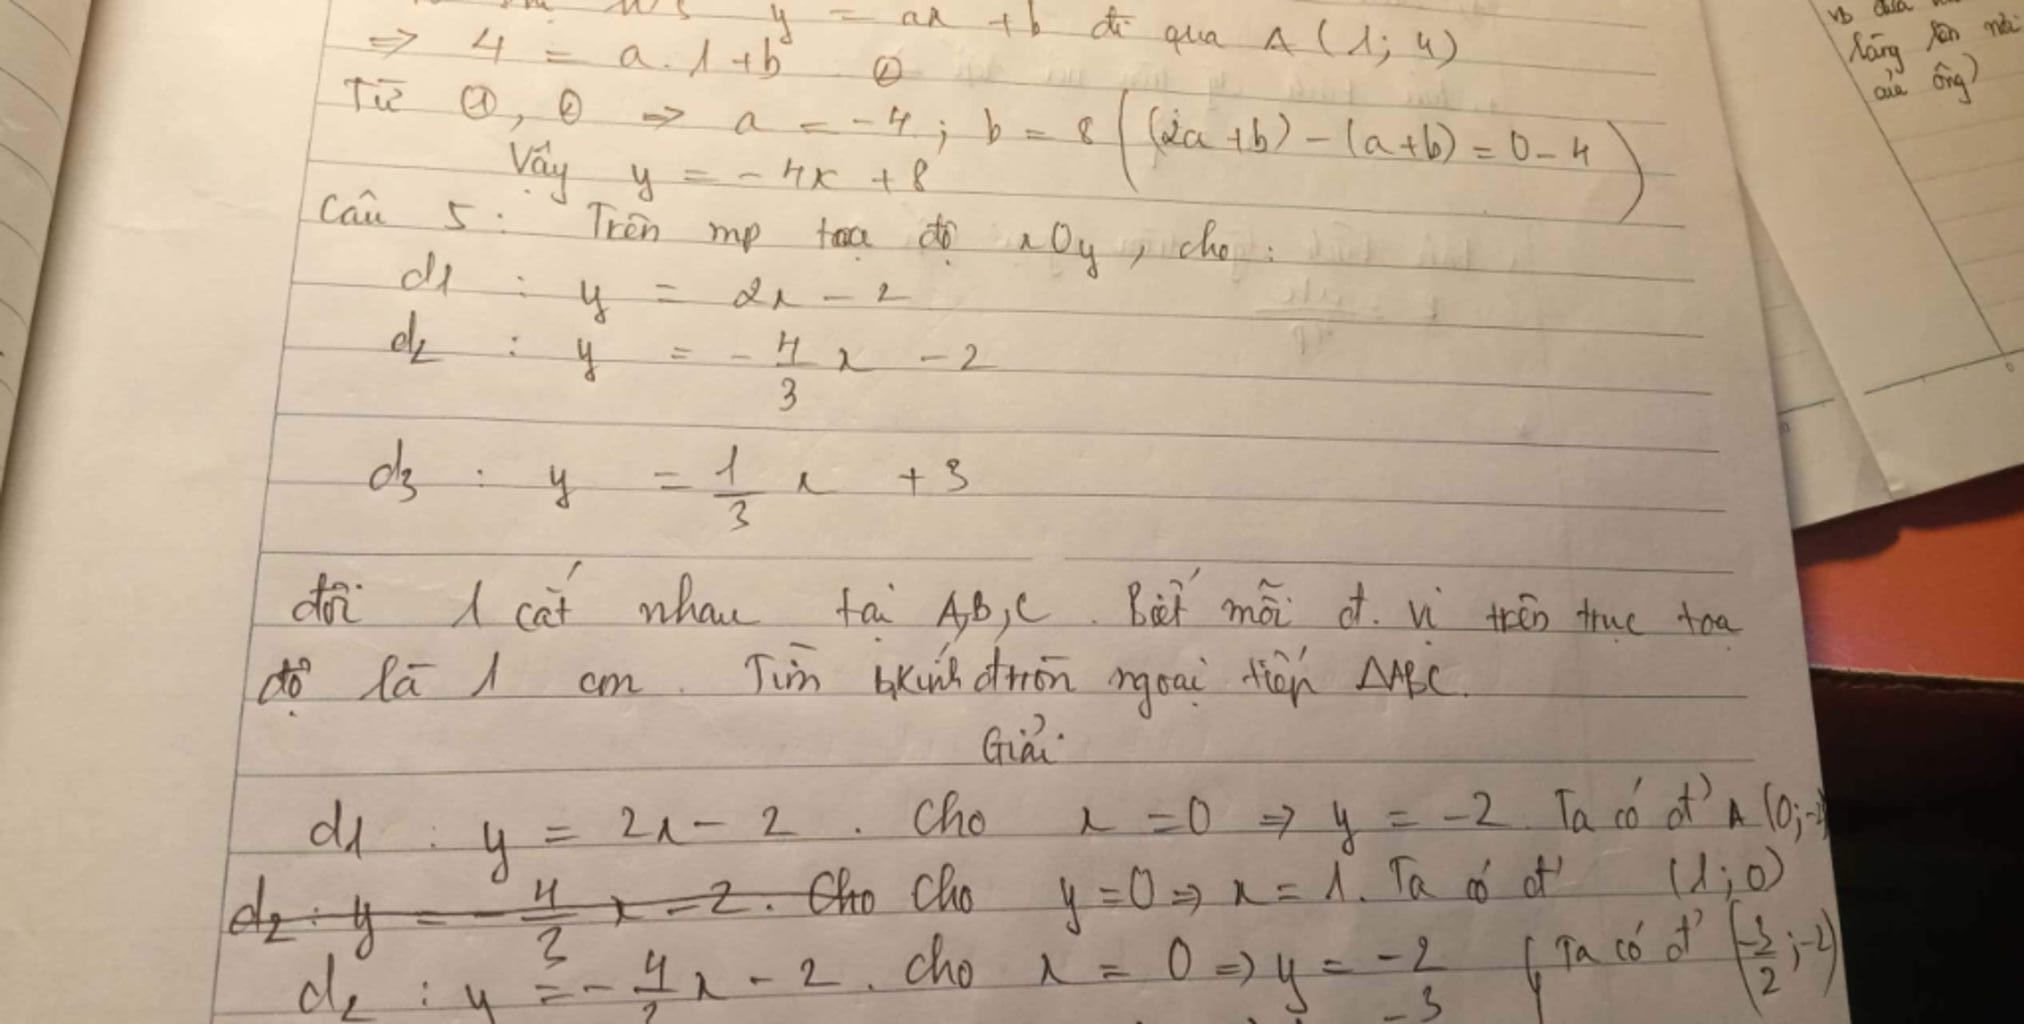 y = ax + b đi qua A (1; 4)
=> 4 = a.1+b ②
Từ ①, ② => a = -4; b = 8 ((2a+b) - (a+b) = 0-4)
Vậy y = -4x + 8
Câu 5: Trên mp toạ độ xOy, cho:
d1 : y = 2x - 2
d2 : y = -4/3 x - 2
d3 : y = 1/3 x + 3
đôi 1 cắt nhau tại A,B,C. Biết mỗi đ.vị trên trục toạ
độ là 1 cm. Tìm bkính đtròn ngoại tiếp ΔABC.
Giải
d1 : y = 2x - 2. Cho x = 0 => y = -2. Ta có đ' A (0;-2)
d2 : y = -4/3 x - 2. Cho Cho y=0 => x = 1. Ta có đ' (1;0)
d2 : y = -4/3 x - 2. Cho x = 0 => y = -2 Ta có đ' (-3/2;-2)
-3
lãng lên nỗi
của ông)